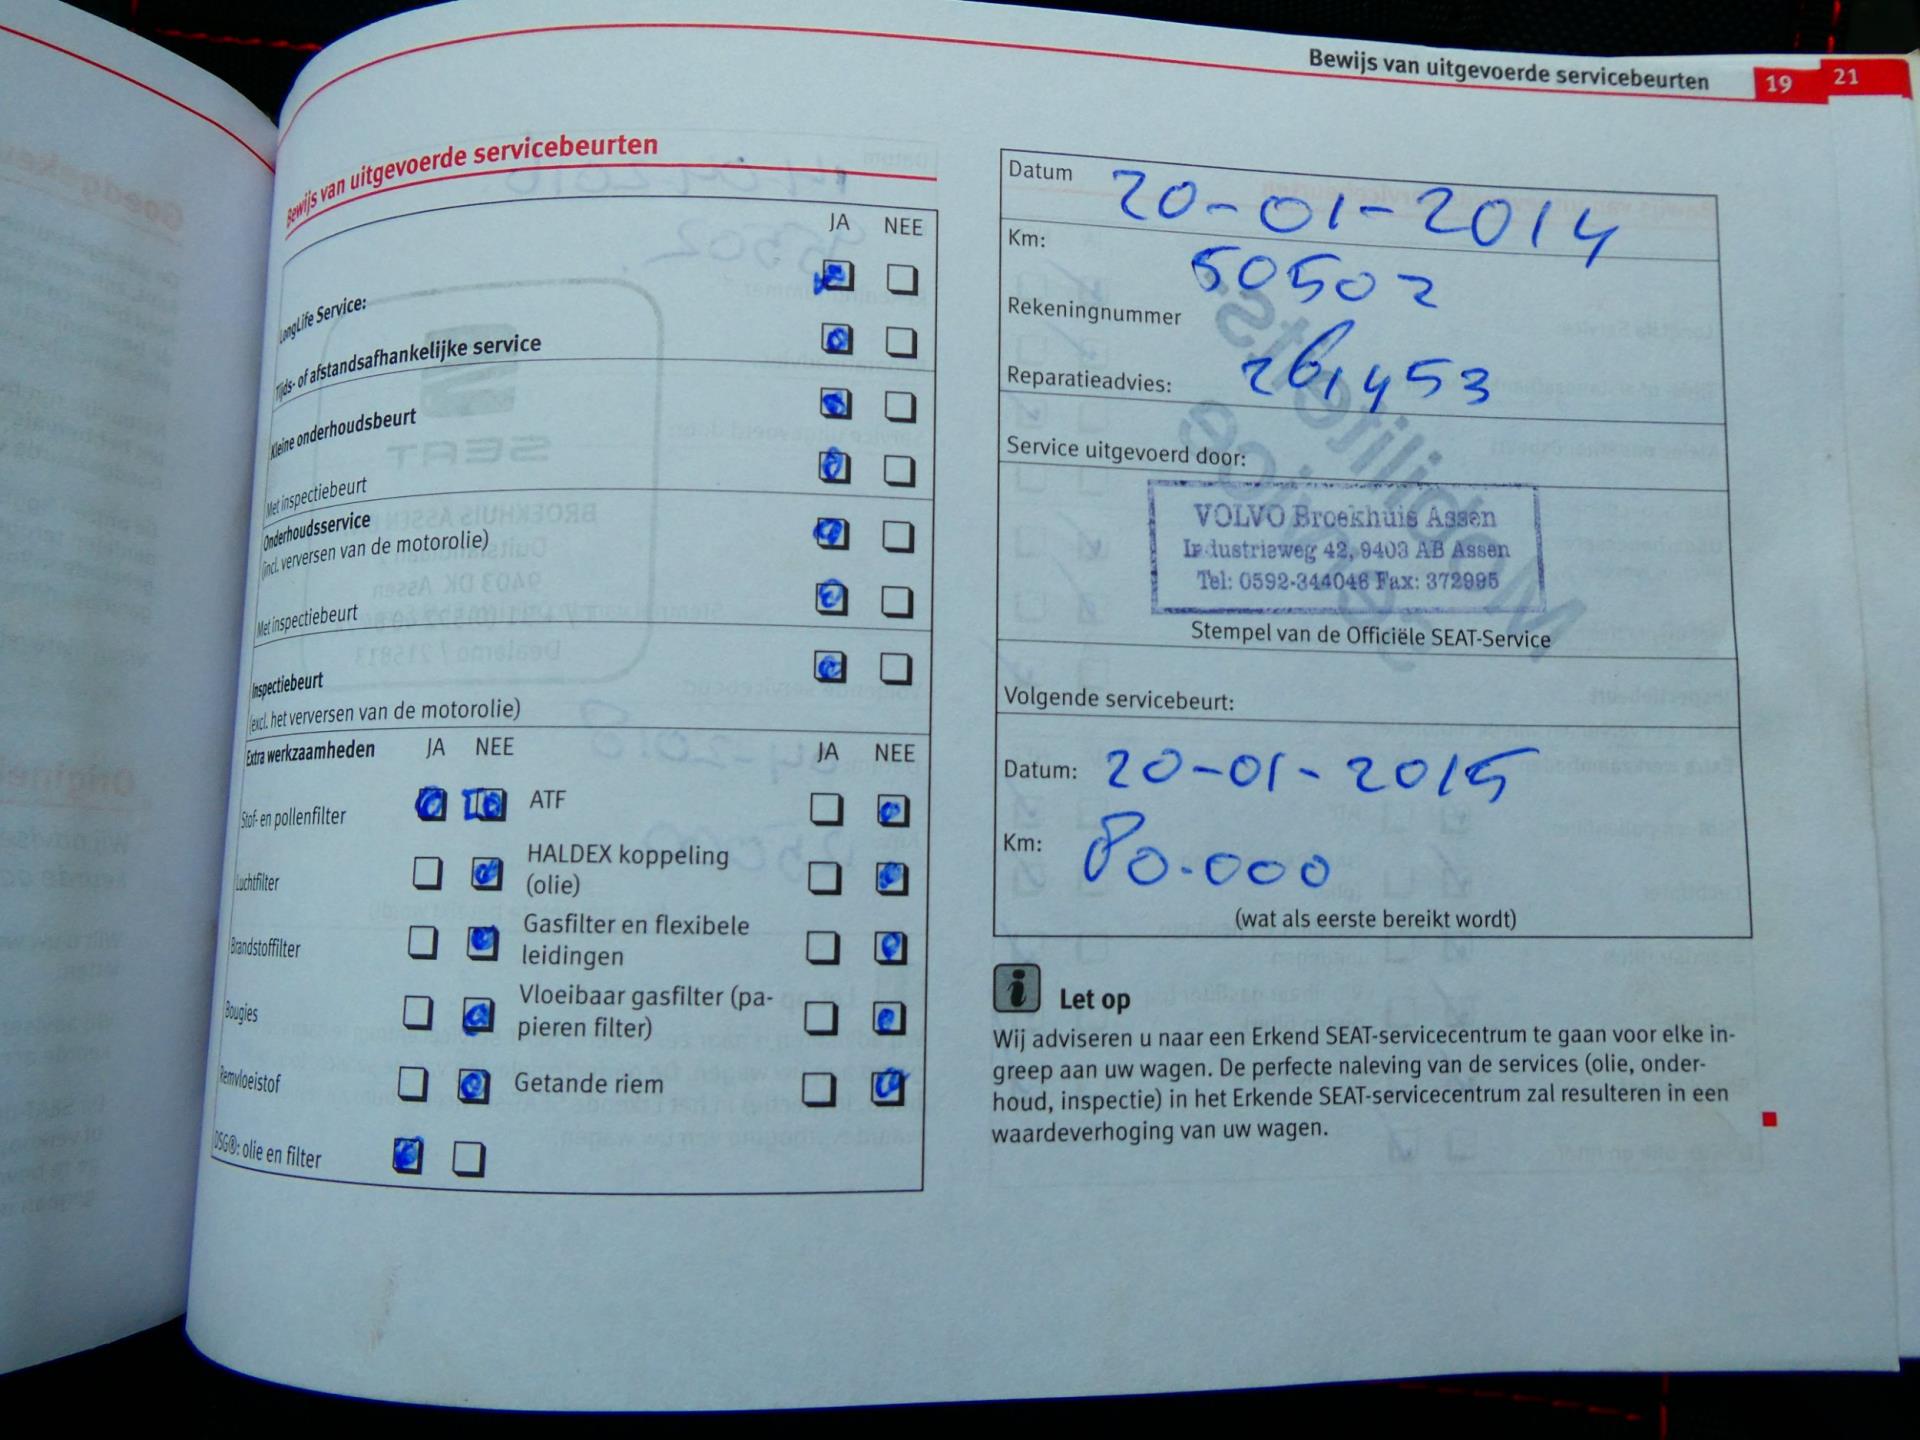 Bewijs van uitgevoerde servicebeurten 19 21
Bewijs van uitgevoerde servicebeurten
JA NEE
LongLife Service:
Tijds- of afstandsafhankelijke service
Kleine onderhoudsbeurt
Met inspectiebeurt
Onderhoudsservice
(incl. verversen van de motorolie)
Met inspectiebeurt
Inspectiebeurt
(excl. het verversen van de motorolie)
Extra werkzaamheden JA NEE JA NEE
Stof- en pollenfilter ATF
Luchtfilter HALDEX koppeling
(olie)
Brandstoffilter Gasfilter en flexibele
leidingen
Bougies Vloeibaar gasfilter (pa-
pieren filter)
Remvloeistof Getande riem
DSG®: olie en filter
Datum 20-01-2014
Km: 50502
Rekeningnummer
Reparatieadvies: 261453
Service uitgevoerd door:
VOLVO Broekhuis Assen
Industrieweg 42, 9403 AB Assen
Tel: 0592-344046 Fax: 372995
Stempel van de Officiële SEAT-Service
Volgende servicebeurt:
Datum: 20-01-2015
Km: 80.000
(wat als eerste bereikt wordt)
i Let op
Wij adviseren u naar een Erkend SEAT-servicecentrum te gaan voor elke in-
greep aan uw wagen. De perfecte naleving van de services (olie, onder-
houd, inspectie) in het Erkende SEAT-servicecentrum zal resulteren in een
waardeverhoging van uw wagen.